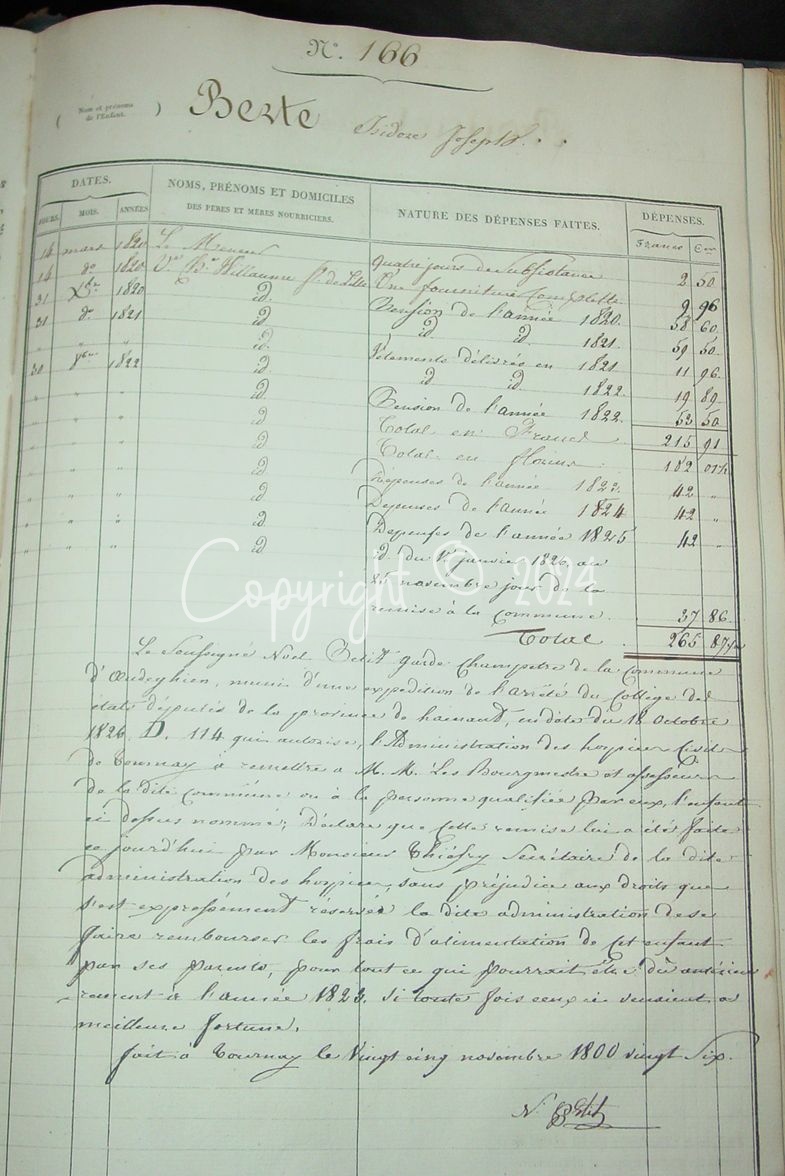 N° 166
( Nom et prénoms de l'Enfant. ) Berte Isidore Joseph.
DATES. NOMS, PRÉNOMS ET DOMICILES DES PÈRES ET MÈRES NOURRICIERS. NATURE DES DÉPENSES FAITES. DÉPENSES.
JOURS. MOIS. ANNÉES Francs Cen
14 mars 1820 Quatre jours de Subsistance 2 50
14 do 1820 Vve Willaume de Lille Une fourniture Complette 9 96
31 Xbre 1820 id. Pension de l'année 1820. 58 60
31 do 1821 id. id. id. 1821. 59 50
" " " id. Vêtements délivrés en 1821 11 96
30 1822 id. id. id. 1822. 19 89
" " " id. Pension de l'année 1822. 53 50
" " " id. Total en Francs 215 91
" " " id. Total en florins 102
" " " id. Dépenses de l'année 1823. 42 "
" " " id. Depenses de l'année 1824 42 "
" " " id. Depenses de l'année 1825 42 "
id. du 1er janvier 1826 au
25 novembre jour de la
remise à la commune. 37 86
Total 265 87
Le Soussigné Noel Petit garde Champetre de la Commune
d'Oeudeghien, muni d'une expedition de l'arrêté du Collège des
états députés de la province de hainaut, en date du 18 Octobre
1826 D. 114 qui autorise, l'Administration des hospices Civils
de Tournay à remettre a M. M. Les Bourgmestre et assesseurs
de la dite Commune ou à la personne qualifiée par eux, l'enfant
ci dessus nommé; Déclare que cette remise lui a été faite
ce jourd'hui par Monsieur Thiéfry Secrétaire de la dite
administration des hospices, sans préjudice aux droits que
s'est expressément réservée la dite administration de se
faire rembourser les frais d'alimentation de Cet enfant
par ses parents, pour tout ce qui pourrait être dû antérieu
rement à l'année 1823. si toute fois ceux ci venaient a
meilleure fortune.
fait à Tournay le Vingt cinq novembre 1800 vingt Six.
N. Petit
Copyright © 2024